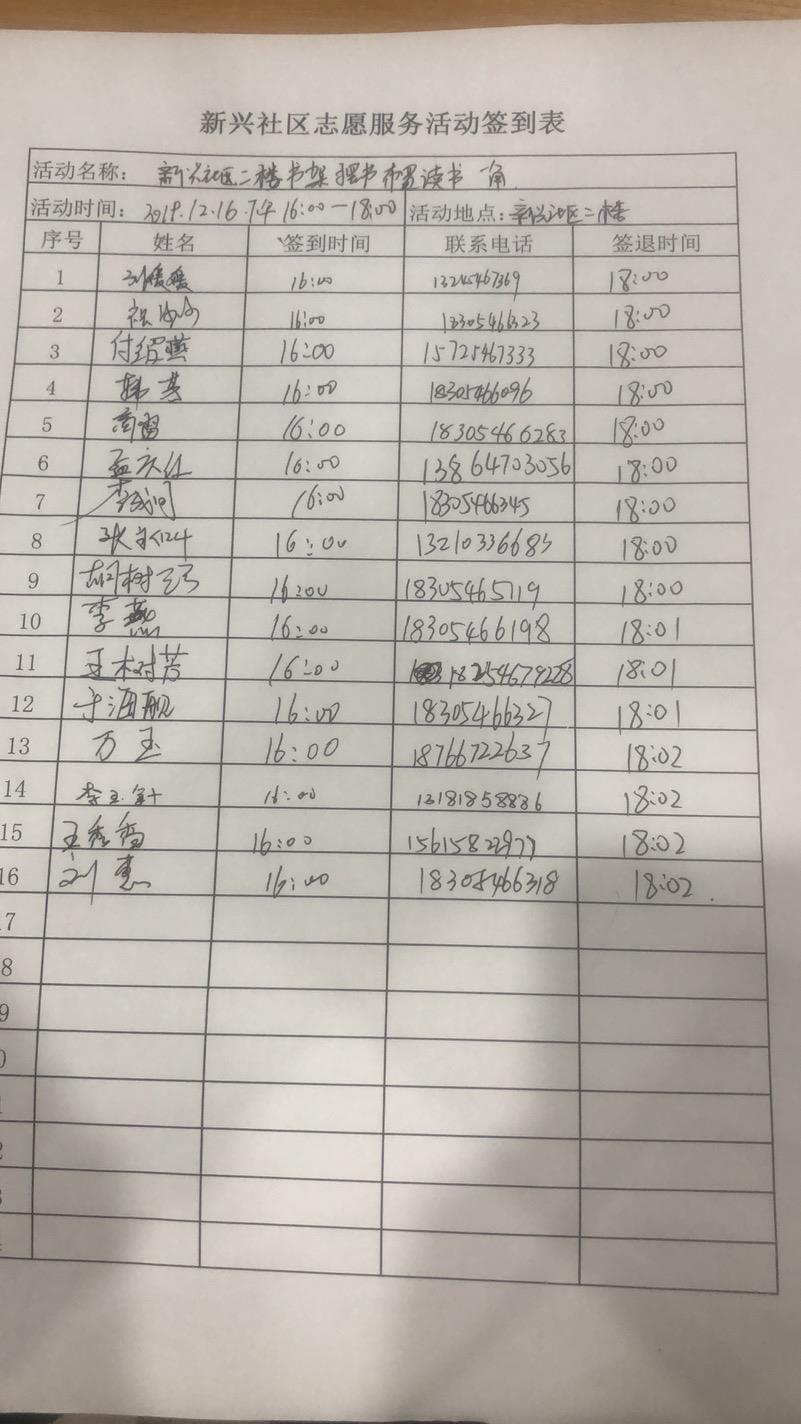 新兴社区志愿服务活动签到表
活动名称： 新兴社区二楼书架摆书布置读书一角
活动时间：2019.12.16 下午16:00－18:00 活动地点：新兴社区二楼
序号 姓名 签到时间 联系电话 签退时间
1 刘媛媛 16:00 13245467369 18:00
2 16:00 13305466323 18:00
3 付绍燕 16:00 15725467333 18:00
4 韩芳 16:00 18305466096 18:00
5 商蕾 16:00 18305466283 18:00
6 孟庆红 16:00 13864703056 18:00
7 16:00 18305466345 18:00
8 16:00 13210336683 18:00
9 16:00 18305465719 18:00
10 李燕 16:00 18305466198 18:01
11 王树芳 16:00 18254679228 18:01
12 于海舰 16:00 18305466327 18:01
13 万玉 16:00 18766722637 18:02
14 李玉针 16:00 13181858836 18:02
15 王秀香 16:00 15615822977 18:02
16 刘惠 16:00 18305466318 18:02